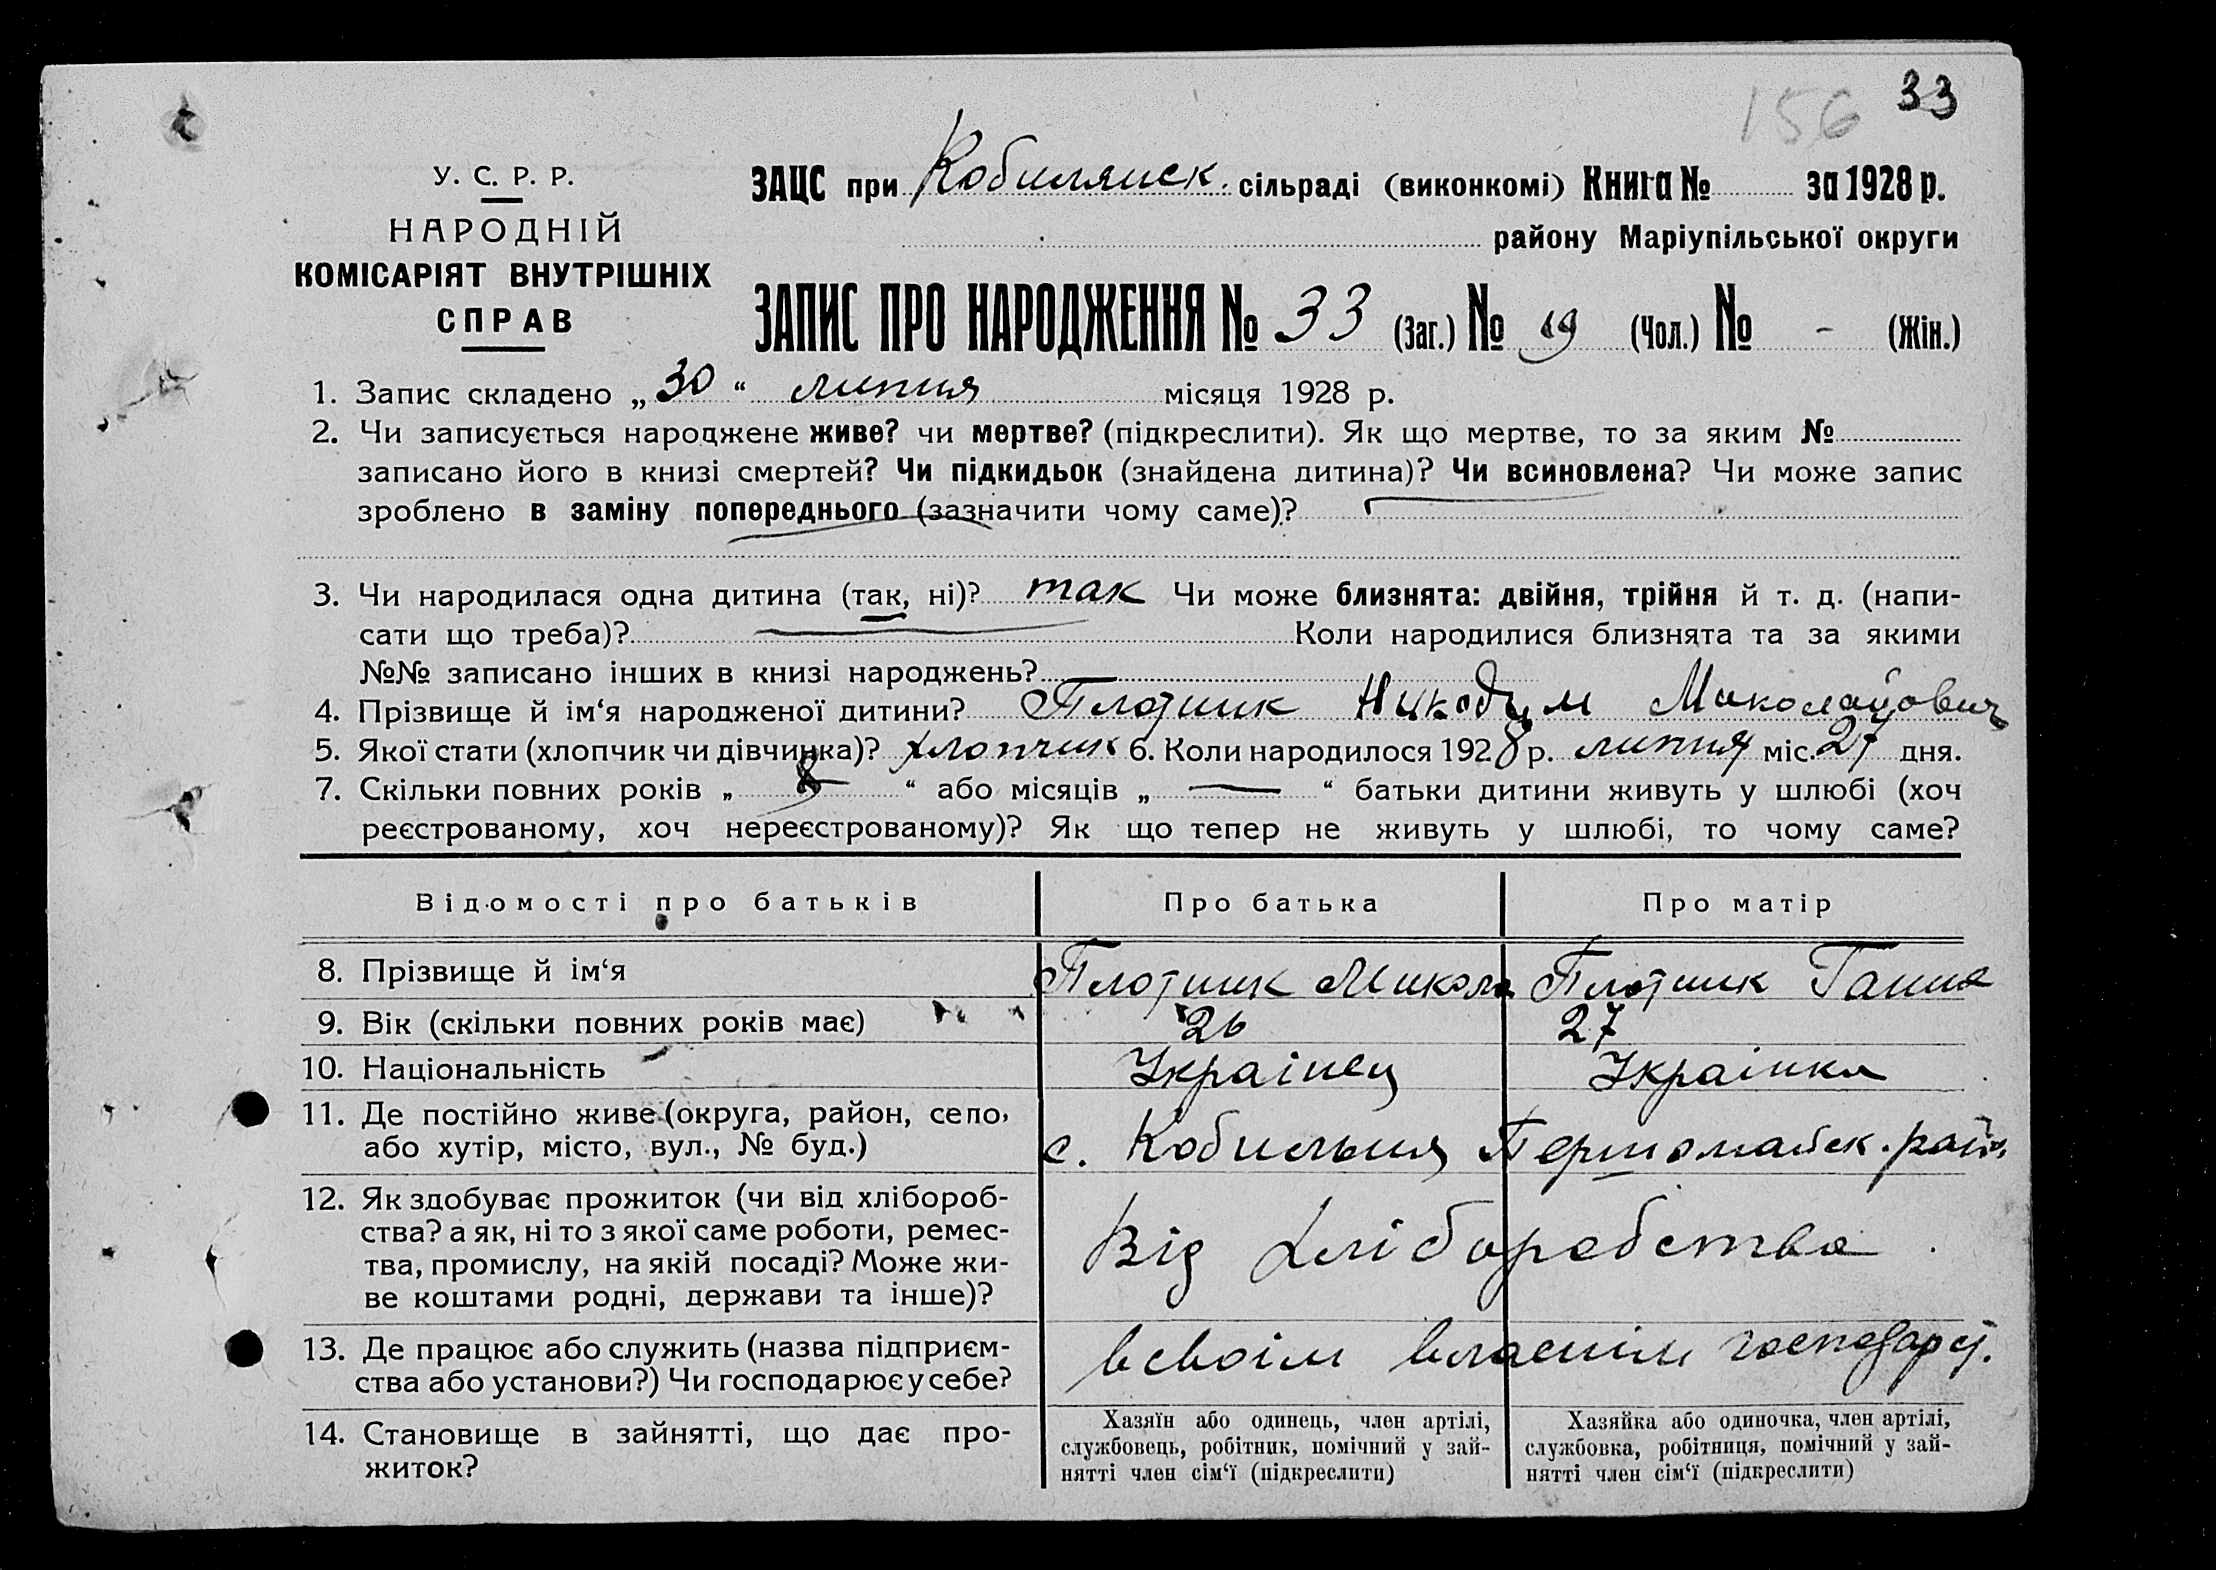 156 33
У. С. Р. Р.
НАРОДНІЙ
КОМІСАРІЯТ ВНУТРІШНІХ
СПРАВ
ЗАЦС при Кобилянск. сільраді (виконкомі) Книга № за 1928 р.
району Маріупільської округи
ЗАПИС ПРО НАРОДЖЕННЯ № 33 (Заг.) № 19 (Чол.) № - (Жін.)
1. Запис складено „30“ липня місяця 1928 р.
2. Чи записується народжене живе? чи мертве? (підкреслити). Як що мертве, то за яким №
записано його в книзі смертей? Чи підкидьок (знайдена дитина)? Чи всиновлена? Чи може запис
зроблено в заміну попереднього (зазначити чому саме)?
3. Чи народилася одна дитина (так, ні)? так Чи може близнята: двійня, трійня й т. д. (напи-
сати що треба)? Коли народилися близнята та за якими
№№ записано інших в книзі народжень?
4. Прізвище й ім‘я народженої дитини? Плотник Никодим Миколайович
5. Якої стати (хлопчик чи дівчинка)? хлопчик 6. Коли народилося 1928 р. липня міс. 27 дня.
7. Скільки повних років „ 8 “ або місяців „ — “ батьки дитини живуть у шлюбі (хоч
реєстрованому, хоч нереєстрованому)? Як що тепер не живуть у шлюбі, то чому саме?
Відомості про батьків Про батька Про матір
8. Прізвище й ім‘я Плотник Микола Плотник Ганна
9. Вік (скільки повних років має) 26 27
10. Національність Українец Українка
11. Де постійно живе (округа, район, село,
або хутір, місто, вул., № буд.) с. Кобильня Першомайск. райн.
12. Як здобуває прожиток (чи від хлібороб-
ства? а як, ні то з якої саме роботи, ремес-
тва, промислу, на якій посаді? Може жи-
ве коштами родні, держави та інше)?
Від хліборобства
13. Де працює або служить (назва підприєм-
ства або установи?) Чи господарює у себе?
в своім власнім господарст.
14. Становище в зайнятті, що дає про-
житок?
Хазяїн або одинець, член артілі,
службовець, робітник, помічний у зай-
нятті член сім‘ї (підкреслити)
Хазяйка або одиночка, член артілі,
службовка, робітниця, помічний у зай-
нятті член сім‘ї (підкреслити)